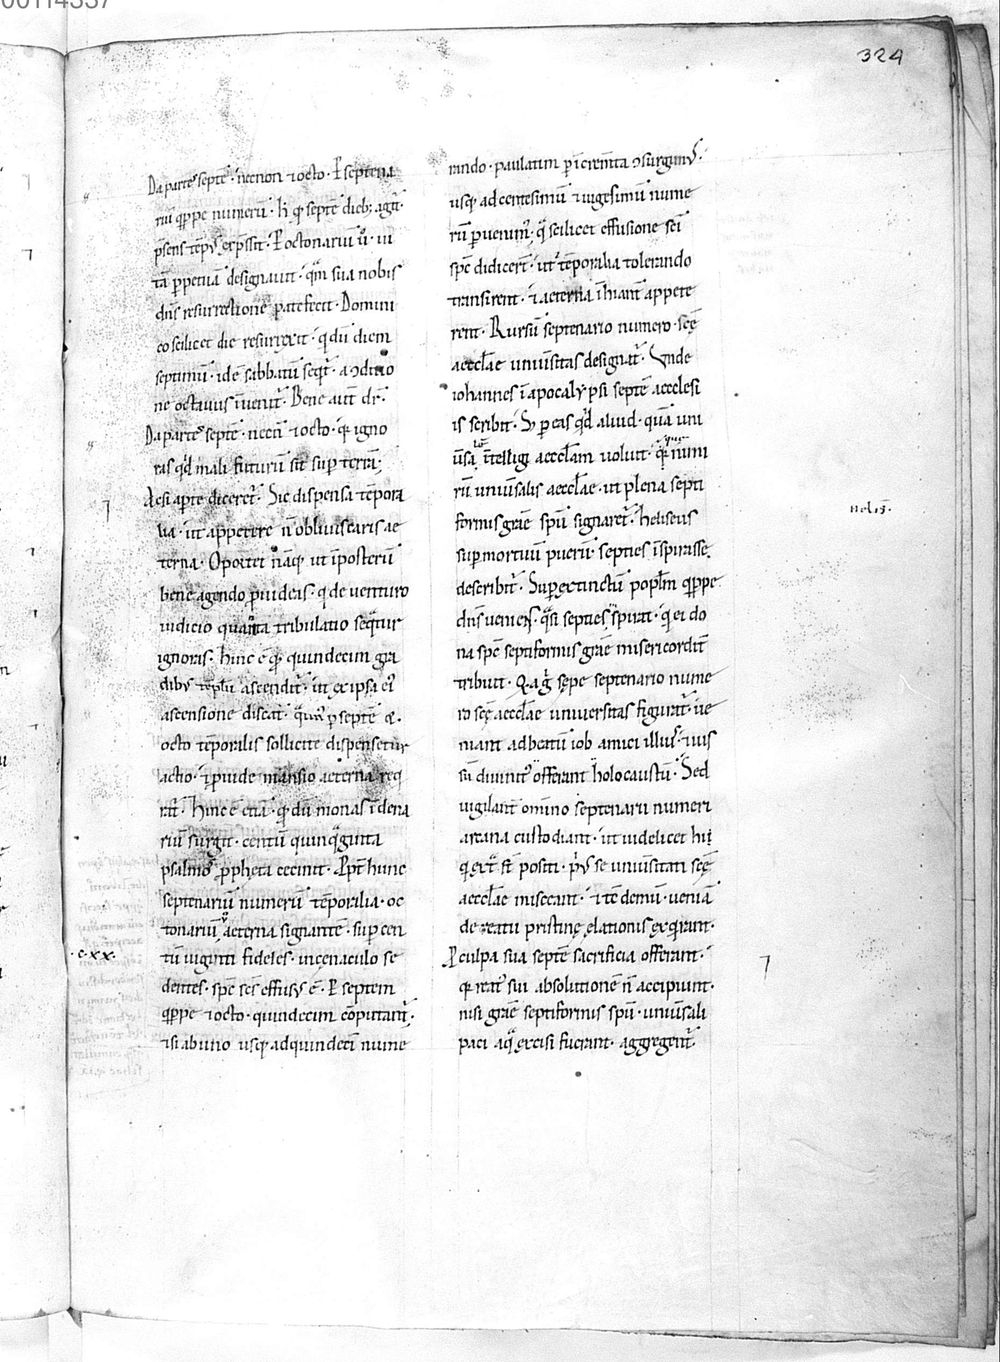 00114337
324
Da parte᷒ septē · necnon ⁊ octo · P septena
riū qͥppe numerū · h̄ qͩ septē dieb; agit᷑·
p̄sens tēp᷒ exp̄ssit · P octonariū ů · ui
tā ꝑpetuā designauit · qͣm sua nobis
dn̄s resurrectione patefecit · Domini
co scilicet die resurrexit · qͥ dū diem
septimū · idē sabbatū seqͥt᷑ · a ↄditio
ne octauus īuenit᷑ · Bene aut̄ dr̄·
Da parte᷒ septē · necn̄ ⁊ octo · qͣ igno
ras qͥd mali futurū sit sup terrā;
Acsi aperte diceret᷑ · Sic dispensa tēpora
lia · ut appetere n̄ obliuiscaris ae
terna · Oportet nāq; ut īposterū
bene agendo ꝓuideas · qͥ de uenturo
iudicio quanta tribulatio seqͣtur
ignoras · hinc ē qͩ quindecim gra
dib᷒ tēplū ascendit᷑ · ut ex ipsa ei᷒
ascensione discat᷑ · qͣtin᷒ ꝑ septē &·
octo tēporalis sollicite dispensetur
actio · ⁊ ꝓuide mansio aeterna req
rat᷑ · hinc ē etiā · qͩ dū monas ī dena
riū surgit · centū quinqͣginta
psalmos ꝓpheta cecinit · Ppt̄ hunc
septenariū numerū tēporalia · oc
tonariū᷒ aeterna signantē · sup cen
·cxx·
tū uiginti fideles · in cenaculo se
dentes · spc̄ sc̄s effus᷒ ē · P septem
qͥppe ⁊ octo · quindecim cōputant᷑·
⁊ si ab uno usq; ad quindeci᷒ nume
rando · paulatim ꝑ īcrem̄ta ↄsurgim᷒·
usq; ad centesimū ⁊ uigesimū nume
rū ꝑuenim᷒ · qͣ scilicet effusione sc̄i
spc̄ didicer̄t · ut ⁊ tēporalia tolerando
transirent · ⁊ aeterna īhiant̄ appete
rent · Rursū septenario numero · sc̄ę
aecclae uniūsitas designat᷑ · Vnde
iohannes ī apocalypsi septē aecclesi
is scribit · S; ꝑ eas qͥd aliud · quā uni
ūsalē ītelligi aecclam uoluit · qͣ numi
rū uniūsalis aecclae · ut plena septi
neliꝰ·
formis grāe spū signaret᷑ · heliseus
sup mortuū puerū · septies īspirasse
describit᷑ · Sup extinctū popl̄m qͥppe
dn̄s ueniens · qͣsi septies spirat · qͥ ei do
na spc̄ septiformis grāe misericordit᷑
tribuit · Q,a g᷑ sępe septenario nume
ro sc̄ę aecclae uniuersitas figurat᷑ · ue
niant ad beatū iob amici illi᷒ · ⁊ uis
sū diuinit᷑ offerant holocaustū · Sed
uigilant̄ omino septenarii numeri
arcana custodiant · ut uidelicet hii
qͥ ext᷑ st̄ positi · pri᷒ se uniūsitati sc̄ę
aecclae misceant · ⁊ tc̄ demū · ueniā
de reatu pristinę elationis exqͥrant·
P culpa sua septē sacrificia offerant·
qͣ reat᷒ sui absolutionē n̄ accipiunt·
nisi grāe septiformis spū · uniūsali
paci a qͣ excisi fuerant · aggregent᷑·